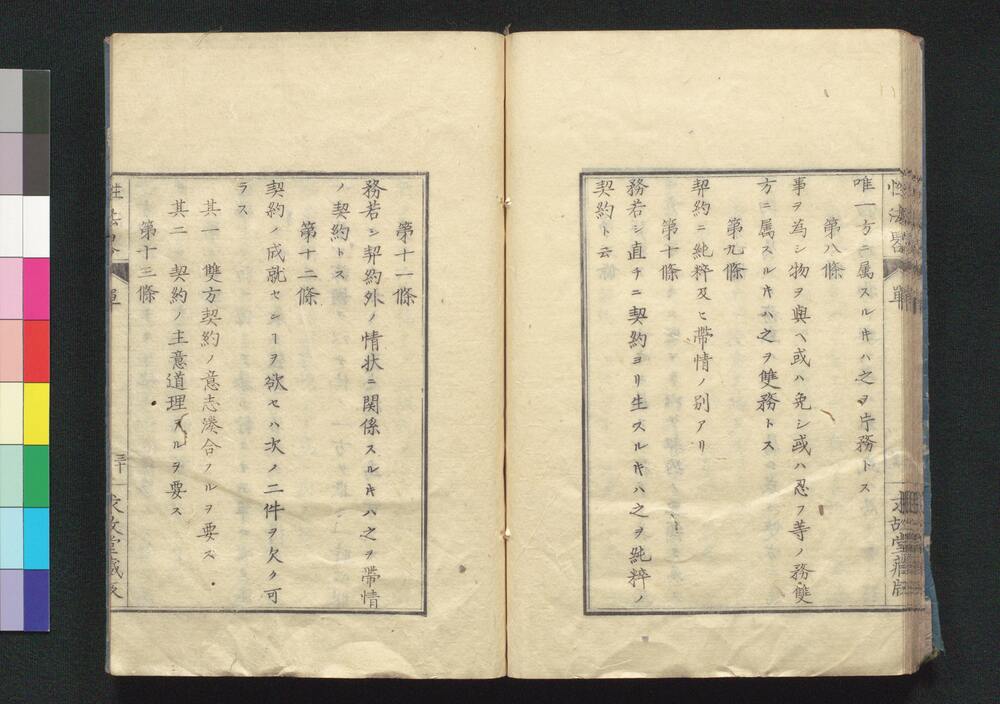 唯一方ニ属スルキハ之ヲ片務トス
第八條
事ヲ為シ物ヲ與ヘ或ハ免シ或ハ忍フ等ノ務雙
方ニ属スルキハ之ヲ雙務トス
第九條
契約ニ純粹及ヒ帶情ノ別アリ
第十條
務若シ直チニ契約ヨリ生スルキハ之ヲ純粹ノ
契約ト云
第十一條
務若シ契約外ノ情状ニ関係スルキハ之ヲ帶情
ノ契約トス
第十二條
契約ノ成就センヿヲ欲セハ次ノ二件ヲ欠ク可
ラス
其一 雙方契約ノ意志湊合スルヲ要ス
其二 契約ノ主意道理アルヲ要ス
第十三條
性法畧 單
求故堂藏版
三十